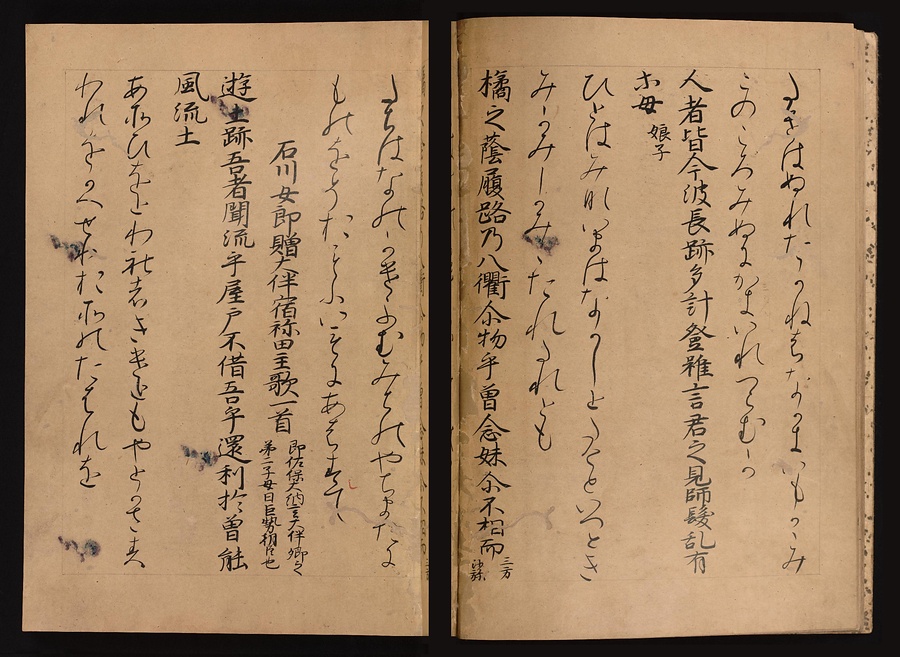 たきはぬれたかねはなかきいもかかみ
このころみぬにかきいれつらむか
人者皆今波長跡多計登雖言君之見師髪乱有
等母 娘子
ひとはみないまはなかしとたけといへとき
みかみしかみみたれたれとも
橘之蔭履路乃八衢尓物乎曽念妹尓不相而 三方沙弥
たちはなのかけふむみちのやちまたに
ものをそおもふいもにあはすて
石川女郎贈大伴宿祢田主歌一首 即佐保大納言大伴卿之第二子母曰巨勢朝臣也
遊士跡吾者聞流乎屋戸不借吾乎還利於曽能
風流士
あそひをとわれはきけともやとかさす
われをかへせりおそのたはれを